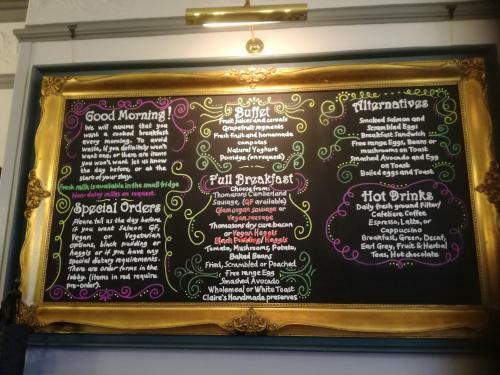 Good Morning!
We will assume that you
want a cooked breakfast
every morning. To avoid
waste, if you definitely won't
want one, or there are items
you won't want let us know
the day before, or at the
start of your stay.
Fresh milk is available in the small fridge
Non-dairy milks on request.
Special Orders
Please tell us the day before
if you want Salmon GF,
Vegan or Vegetarian
options, black pudding or
haggis or if you have any
special dietary requirements.
There are order forms in the
lobby. (items in red require
pre-order).
Buffet
Fruit juices and cereals
Grapefruit segments
Fresh fruit and homemade
compotes
Natural Yoghurt
Porridge (on request)
Full Breakfast
Choose from:
Thomasons Cumberland
Sausage, (GF available)
Glamorgan sausage or
Vegan sausage
Thomasons dry cure bacon
or Vegan Haggis
Black Pudding/ Haggis
Tomato, Mushrooms, Potato,
Baked Beans
Fried, Scrambled or Poached
free range Egg
Smashed Avocado
Wholemeal or White Toast
Claire's Handmade preserves
Alternatives
Smoked Salmon and
Scrambled Eggs
Breakfast Sandwich
Free range Eggs, Beans or
mushrooms on
toast
Smashed Avocado and Egg
on Toast
Boiled eggs and Toast
Hot Drinks
Daily fresh ground Filter/
Cafetiere Coffee
Espresso, Latte, or
Cappuccino
Breakfast, Green, Decaf,
Earl Grey, Fruit & Herbal
Teas, Hot chocolate